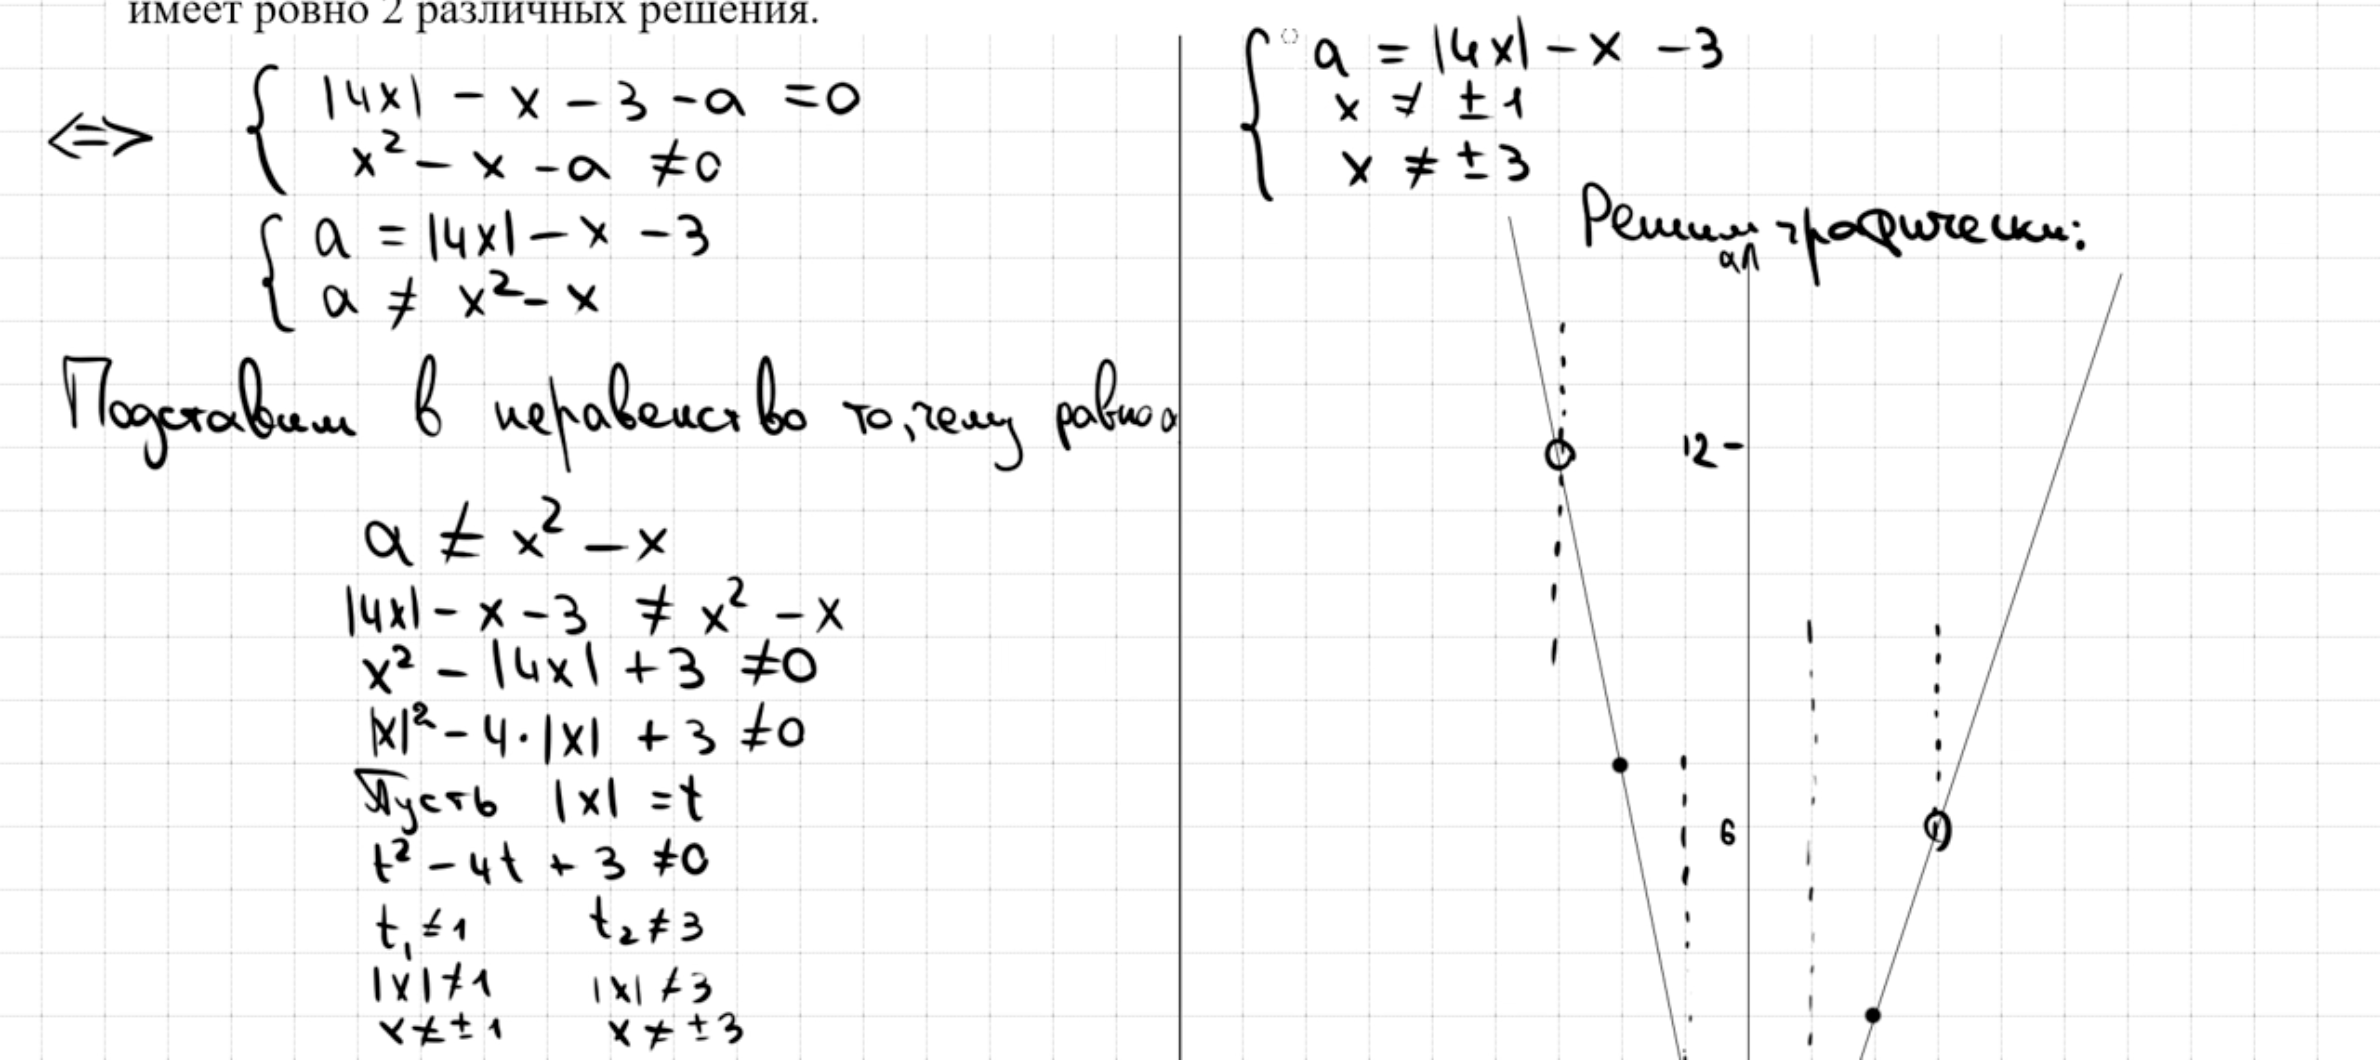 имеет ровно 2 различных решения.
⇔ { |4x| − x − 3 − a = 0
x² − x − a ≠ 0
{ a = |4x| − x − 3
a ≠ x² − x
Подставим в неравенство то, чему равно a
a ≠ x² − x
|4x| − x − 3 ≠ x² − x
x² − |4x| + 3 ≠ 0
|x|² − 4·|x| + 3 ≠ 0
Пусть |x| = t
t² − 4t + 3 ≠ 0
t₁ ≠ 1 t₂ ≠ 3
|x| ≠ 1 |x| ≠ 3
x ≠ ± 1 x ≠ ± 3
{ a = |4x| − x − 3
x ≠ ± 1
x ≠ ± 3
Решим графически:
a
12
6